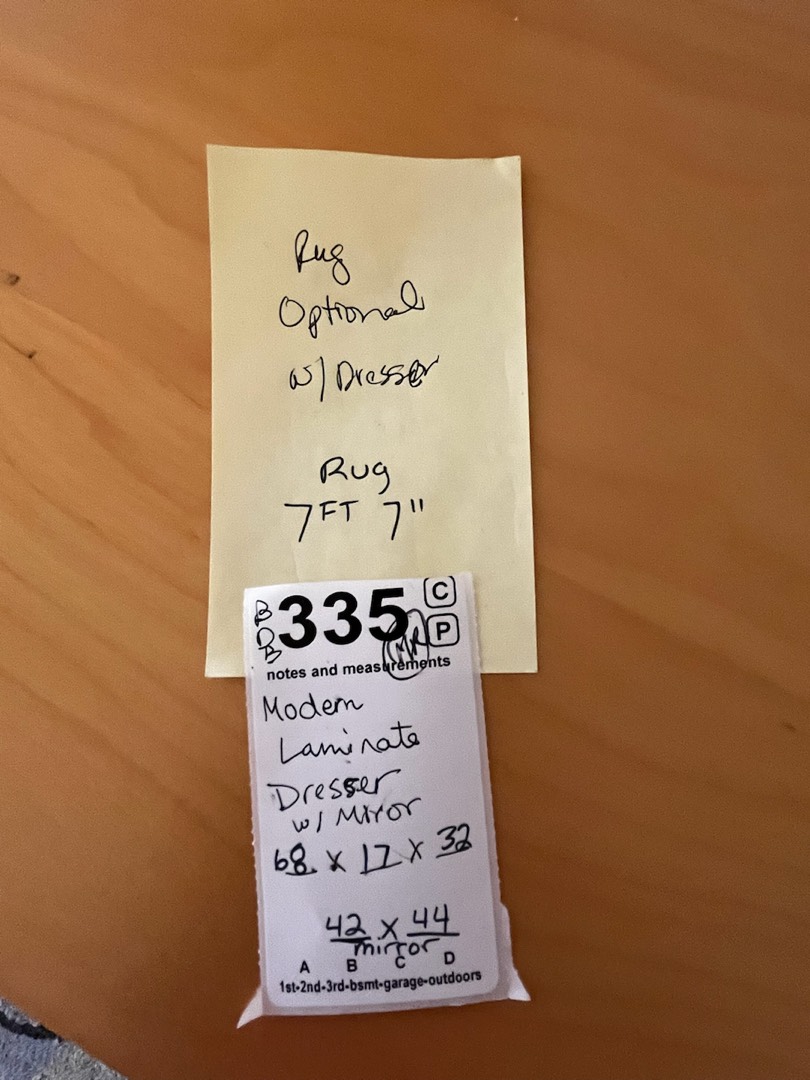 Rug
Optional
w/ Dresser
Rug
7FT 7"
BDB 335 C
MR P
notes and measurements
Modern
Laminate
Dresser
w/ Miror
68 x 17 x 32
42 x 44
mirror
A B C D
1st-2nd-3rd-bsmt-garage-outdoors